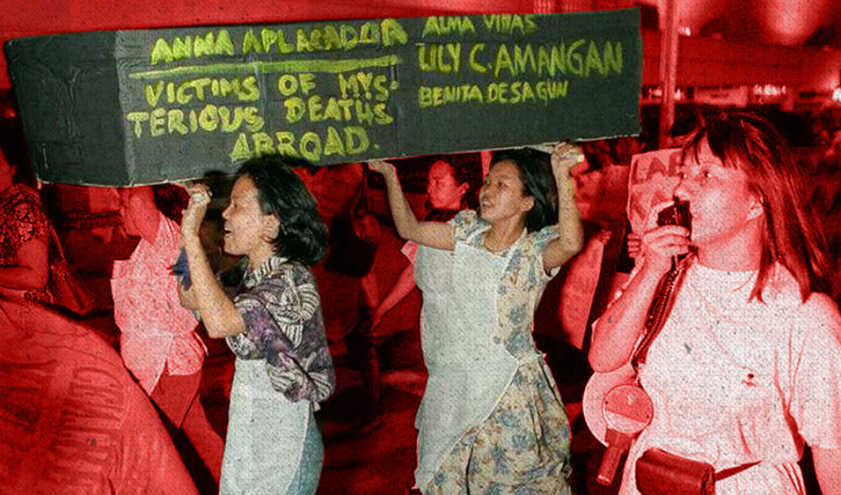 ANNA APLACADOR
VICTIMS OF MYS-
TERIOUS DEATHS
ABROAD.
ALMA VIÑAS
LILY C. AMANGAN
BENITA DESAGUN